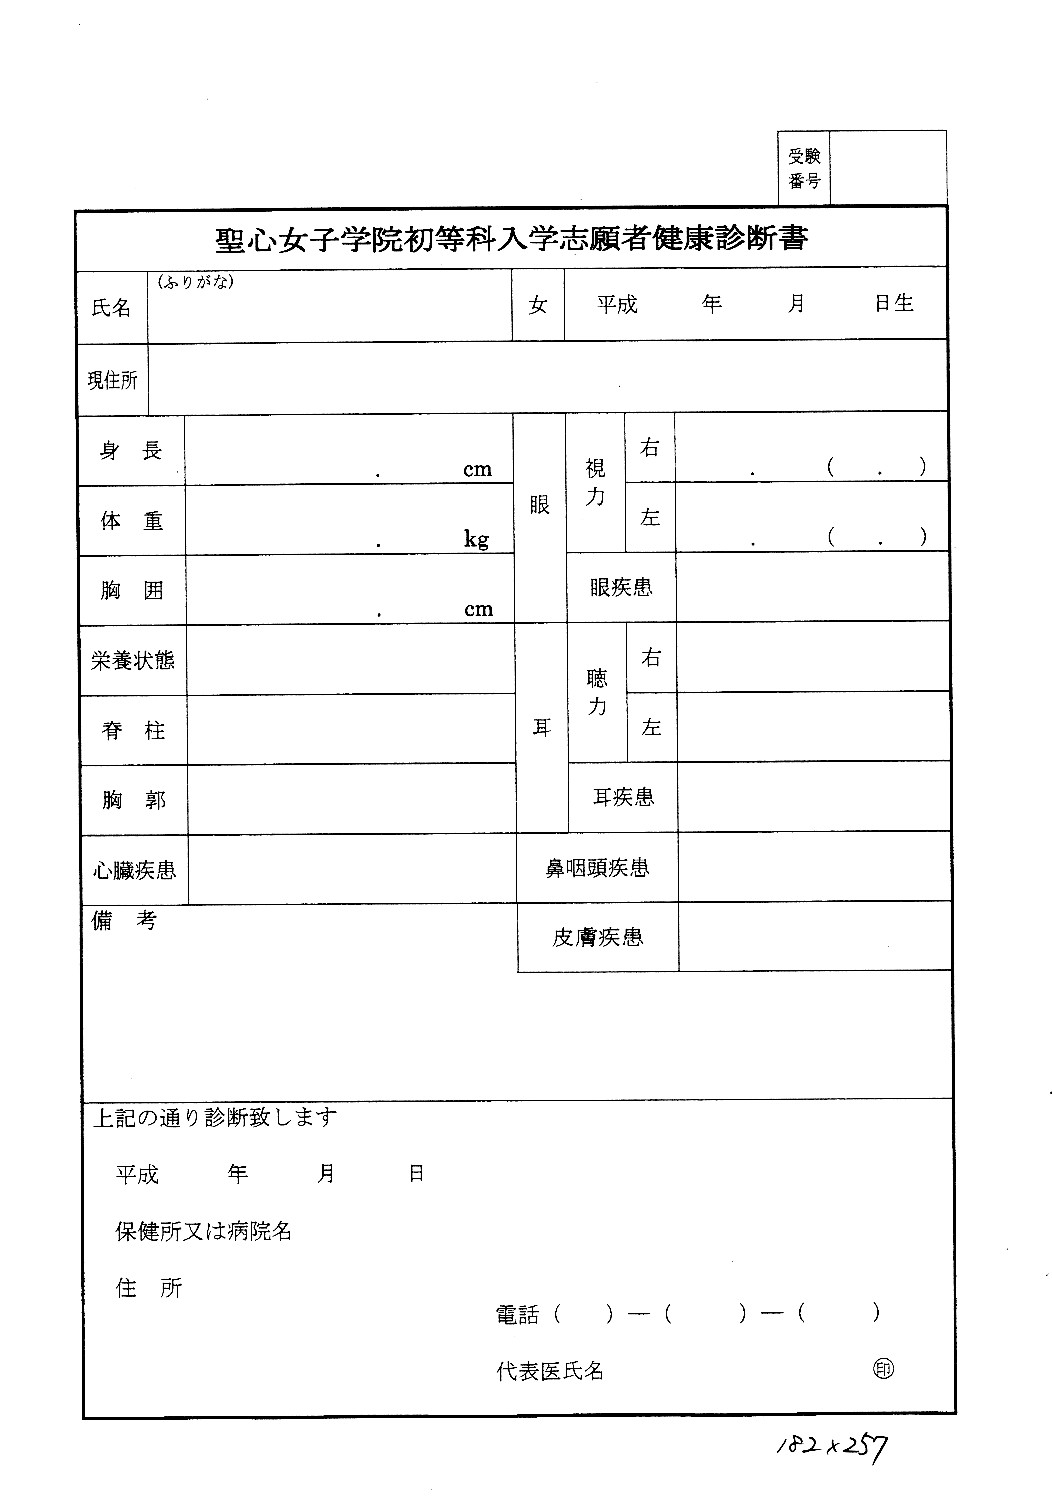 受験
番号
聖心女子学院初等科入学志願者健康診断書
氏名
(ふりがな)
女
平成 年 月 日生
現住所
身 長
. cm
眼
視力
右
. ( . )
体 重
. kg
左
. ( . )
胸 囲
. cm
眼疾患
栄養状態
耳
聴力
右
脊 柱
左
胸 郭
耳疾患
心臓疾患
鼻咽頭疾患
備 考
皮膚疾患
上記の通り診断致します
平成 年 月 日
保健所又は病院名
住 所
電話 ( ) ― ( ) ― ( )
代表医氏名 ㊞
182×257